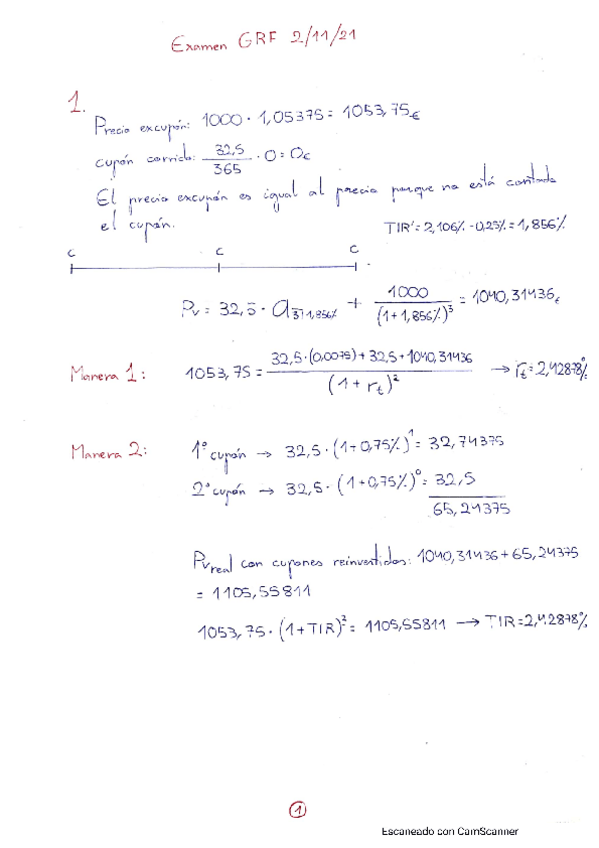 Examen GRF 2/11/21
1.
Precio excupón: 1000 · 1,05375 = 1053,75€
cupón corrido: 32,5/365 · 0 = 0€
El precio excupón es igual al precio porque no está contado
el cupón.
TIR' = 2,106% - 0,25% = 1,856%
C C C
Pv = 32,5 · a3┐1,856% + 1000/(1+1,856%)³ = 1040,31436€
Manera 1: 1053,75 = (32,5·(0,0075) + 32,5 + 1040,31436)/(1 + rt)² → rt = 2,42878%
Manera 2: 1º cupón → 32,5 · (1+0,75%)¹ = 32,74375
2º cupón → 32,5 · (1+0,75%)⁰ = 32,5
65,24375
Pv real con cupones reinvertidos: 1040,31436 + 65,24375
= 1105,55811
1053,75 · (1+TIR)² = 1105,55811 → TIR = 2,42878%
1
Escaneado con CamScanner